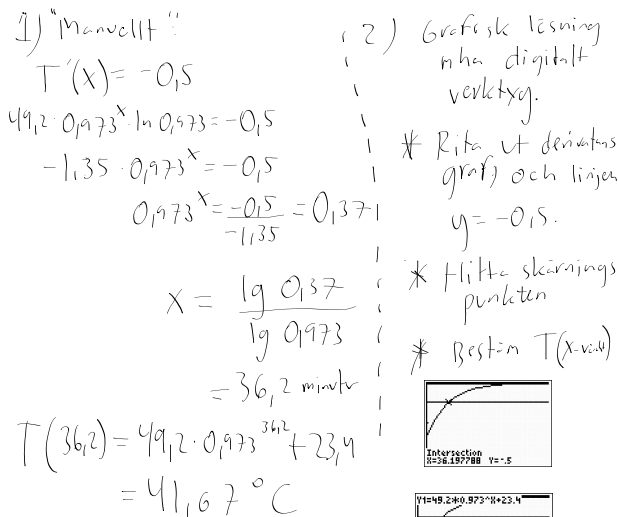 1) "Manuellt":
T'(x) = -0,5
49,2·0,973^x·ln 0,973 = -0,5
-1,35·0,973^x = -0,5
0,973^x = -0,5/-1,35 = 0,37
x = lg 0,37 / lg 0,973
= 36,2 minuter
T(36,2) = 49,2·0,973^36,2 + 23,4
= 41,67 °C
2) Grafisk lösning
mha digitalt
verktyg.
* Rita ut derivatans
graf, och linjen
y = -0,5.
* Hitta skärnings
punkten
* Bestäm T(x-värdet)
Intersection
X=36.197788 Y=-.5
Y1=49.2*0.973^X+23.4